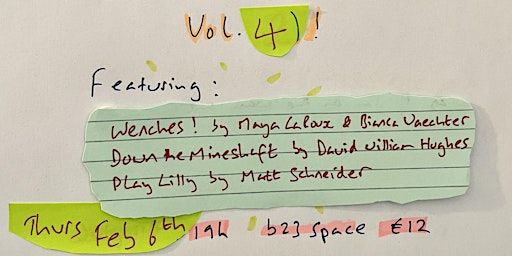 Vol. 4)!
Featuring:
Wenches! by Maya Laloux & Bianca Vaechter
Down the Mineshaft by David William Hughes
Play Lilly by Matt Schneider
Thurs Feb 6th 19h b23 space €12